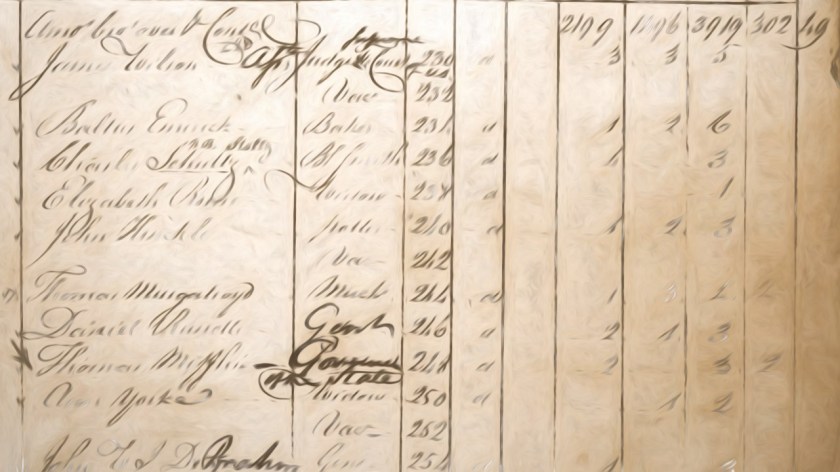 Amo't bro't over & Cont'd 2199 1896 3919 302 49
James Wilson Ass. Judge Supreme Court U.S. 230 a 3 3 5
Vac 232
Baltus Emerick Baker 234 a 1 2 6
Charles Schultz Bl Smith 236 a 3
Elizabeth Widow 238 a 1
John Hinckle potter 240 a 1 2 3
Vac 242
Thomas Murgatroyd Merch 244 a 1
Daniel Gent 246 a 2 1 3
Thomas Mifflin Governor of the State 248 a 2 3
Ann Yorke Widow 250 a 1 2
Vac 252
John Gen 254